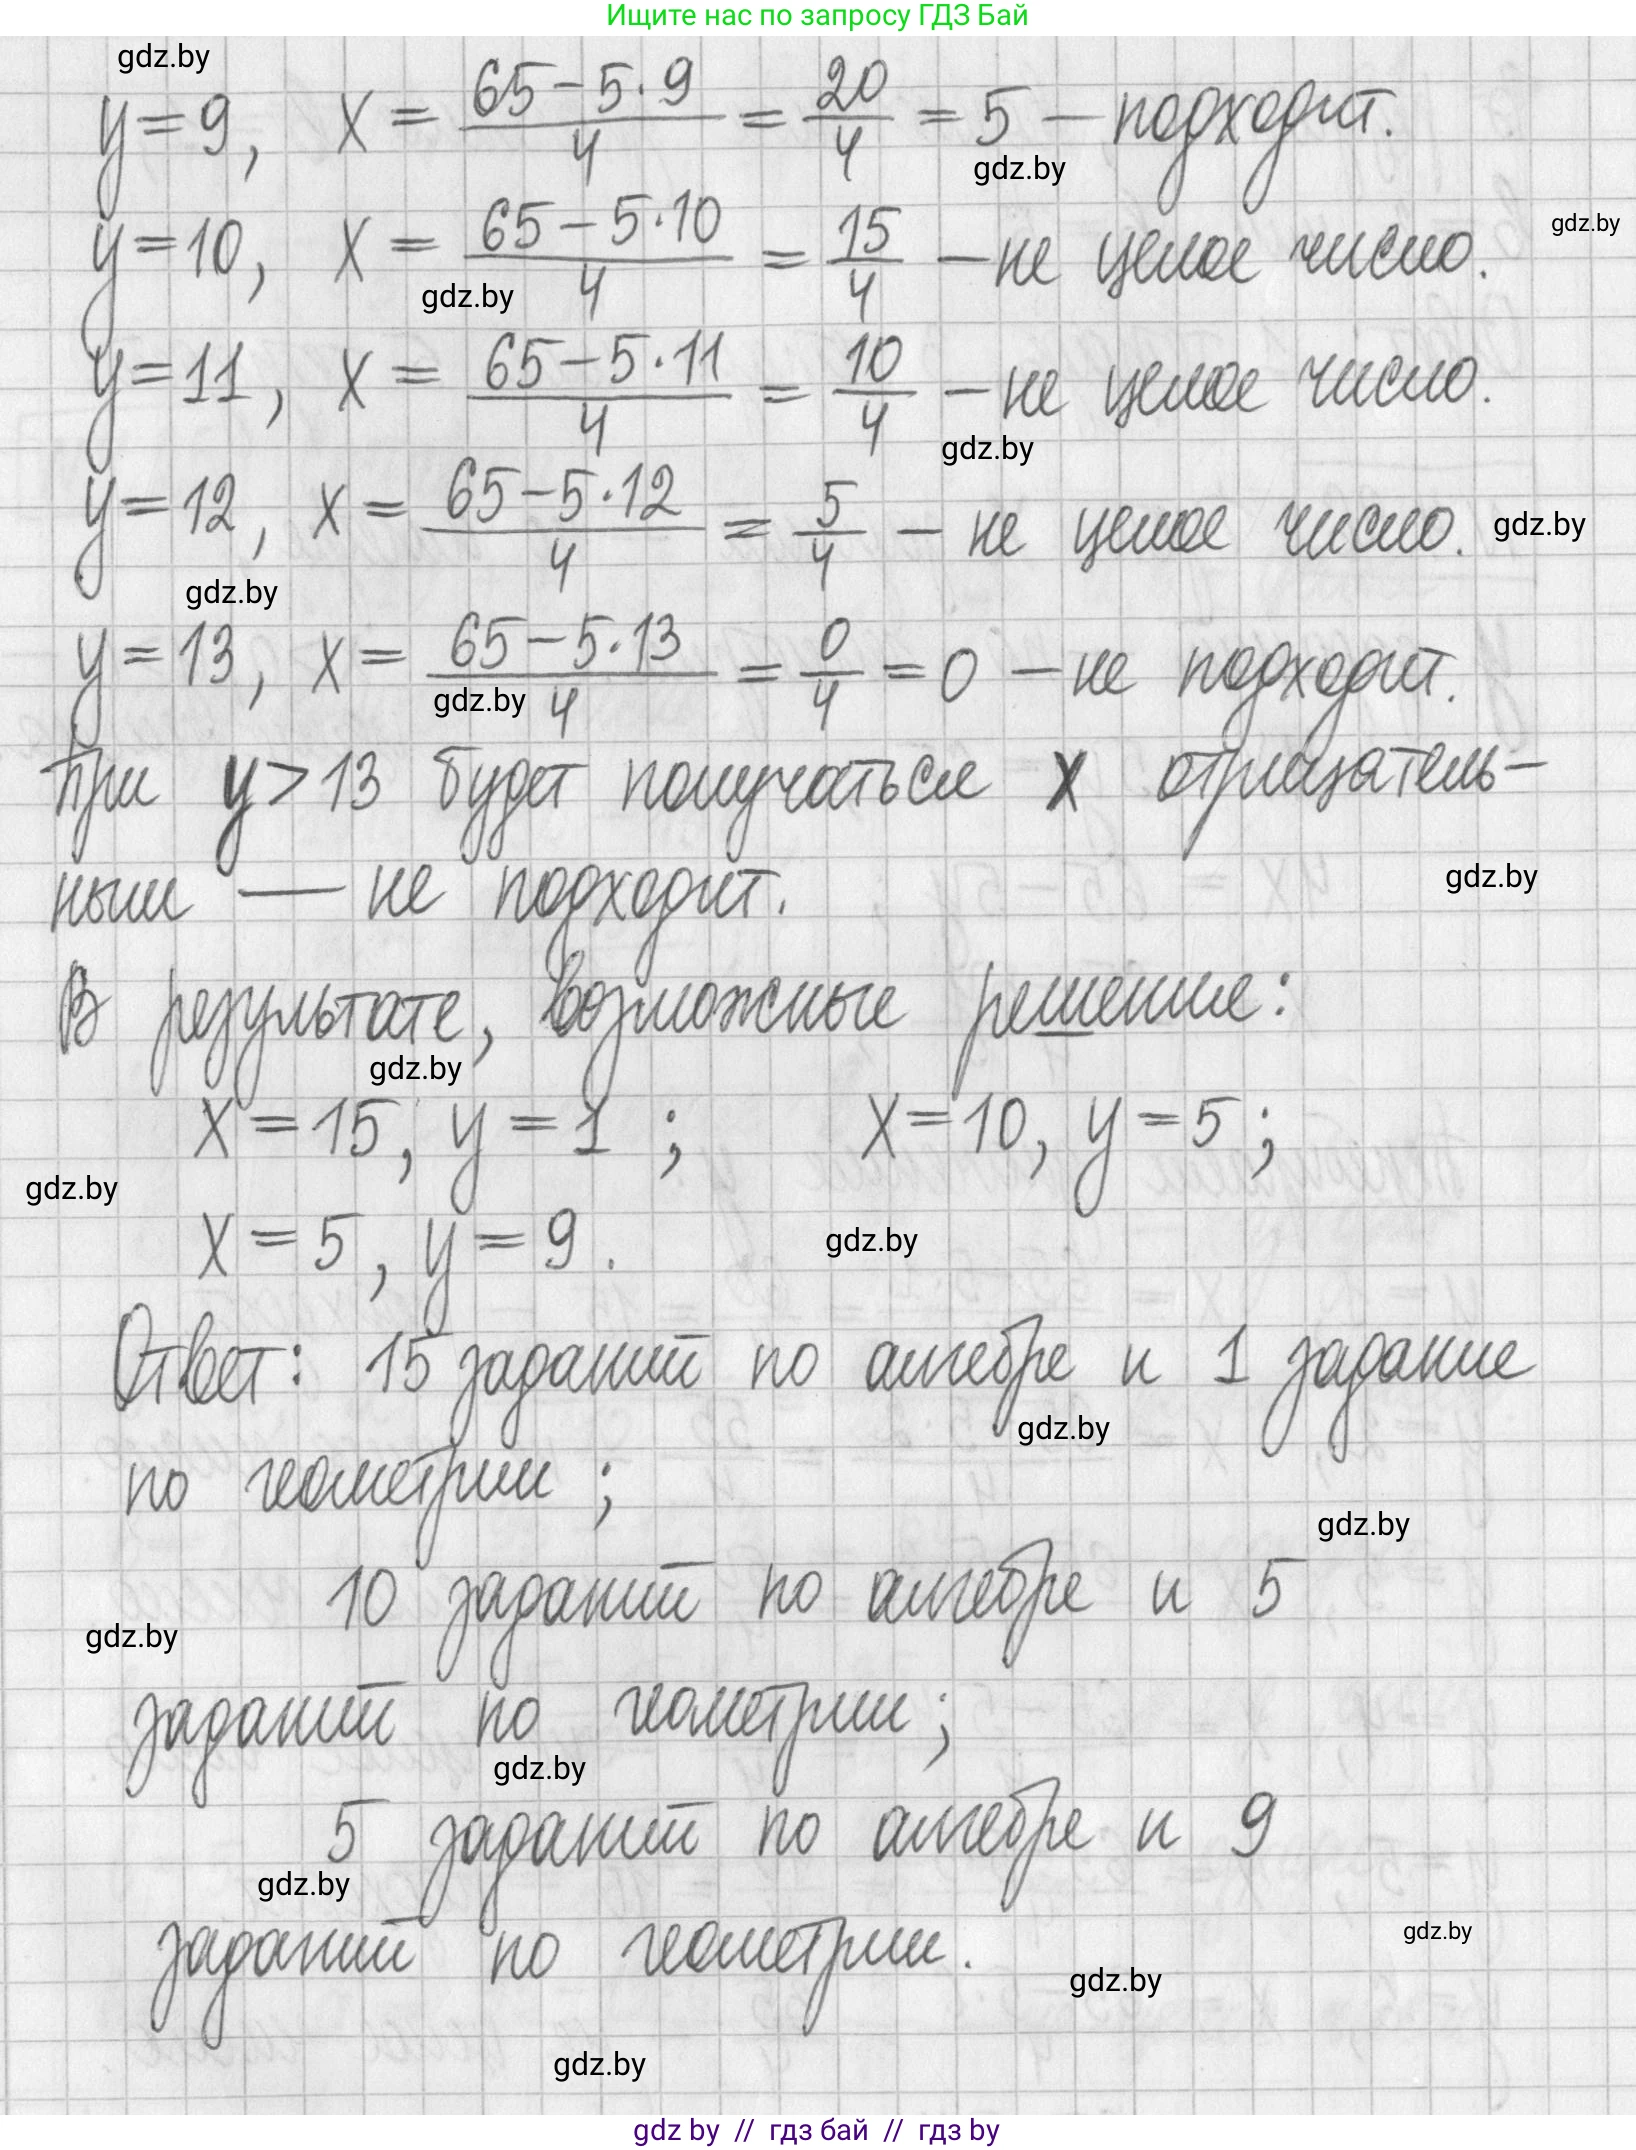 Ищите нас по запросу ГДЗ Бай
gdz.by
y=9, x = (65-5·9)/4 = 20/4 = 5 — подходит.
gdz.by
gdz.by
y=10, x = (65-5·10)/4 = 15/4 — не целое число.
gdz.by
y=11, x = (65-5·11)/4 = 10/4 — не целое число.
gdz.by
y=12, x = (65-5·12)/4 = 5/4 — не целое число.
gdz.by
gdz.by
y=13, x = (65-5·13)/4 = 0/4 = 0 — не подходит.
gdz.by
При y>13 будет получаться x отрицатель-
gdz.by
ным — не подходит.
В результате, возможные решение:
gdz.by
x=15, y=1 ; x=10, y=5;
gdz.by
x=5, y=9.
gdz.by
Ответ: 15 заданий по алгебре и 1 задание
gdz.by
по геометрии;
gdz.by
10 заданий по алгебре и 5
gdz.by
заданий по геометрии;
gdz.by
5 заданий по алгебре и 9
gdz.by
gdz.by
заданий по геометрии.
gdz.by
gdz.by
gdz by // гдз бай // gdz by